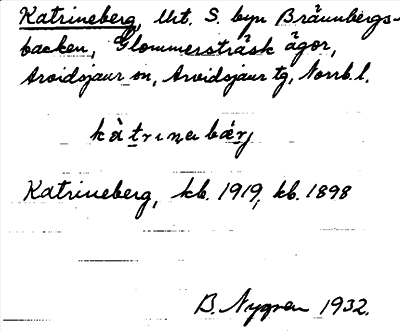 Katrineberg, Urt. S. byn Brännbergs-
backen, Glommersträsk ägor,
Arvidsjaur sn, Arvidsjaur tg, Norrb. l.
kàtrınabǽrj
Katrineberg, kb. 1919, kb. 1898
B. Nygren 1932.